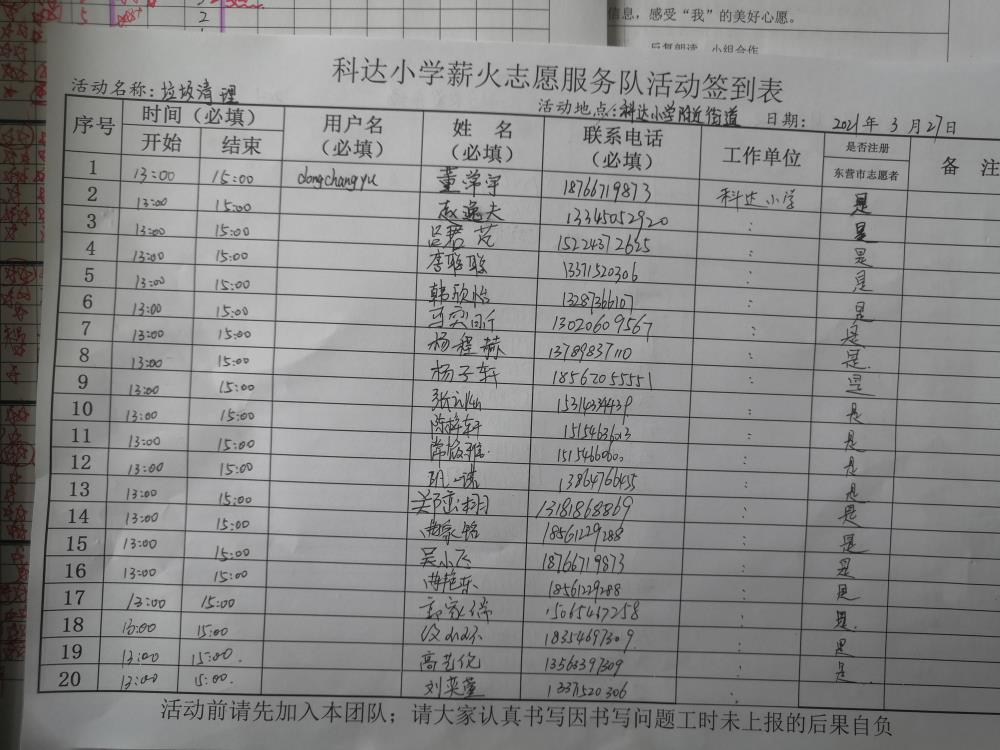 信息，感受“我”的美好心愿。
科达小学薪火志愿服务队活动签到表
活动名称：垃圾清理 活动地点：科达小学附近街道 日期： 2021年 3 月 27日
序号 时间（必填） 用户名（必填） 姓 名（必填） 联系电话（必填） 工作单位 是否注册东营市志愿者 备 注
开始 结束
1 13:00 15:00 dongchangyu 董常宇 18766719873 科达小学 是
2 13:00 15:00 赵逸夫 13345052920 : 是
3 13:00 15:00 吕君芃 15224372625 : 是
4 13:00 15:00 李聪聪 13371520306 : 是
5 13:00 15:00 韩欣怡 13287366107 : 是
6 13:00 15:00 13020609567 : 是
7 13:00 15:00 杨程赫 13789837110 : 是
8 13:00 15:00 杨子轩 18562055551 : 是
9 13:00 15:00 15314334439 : 是
10 13:00 15:00 陈梓轩 : 是
11 13:00 15:00 : 是
12 13:00 15:00 13864766455 : 是
13 13:00 15:00 13181868869 : 是
14 13:00 15:00 18561229288 : 是
15 13:00 15:00 吴小飞 18766719873 : 是
16 13:00 15:00 18561229288 : 是
17 13:00 15:00 郭家瑞 15065467258 : 是
18 13:00 15:00 18354697309 : 是
19 13:00 15:00 高艺伦 13563397309 : 是
20 13:00 15:00 刘奕萱 13371520306 :
活动前请先加入本团队；请大家认真书写因书写问题工时未上报的后果自负